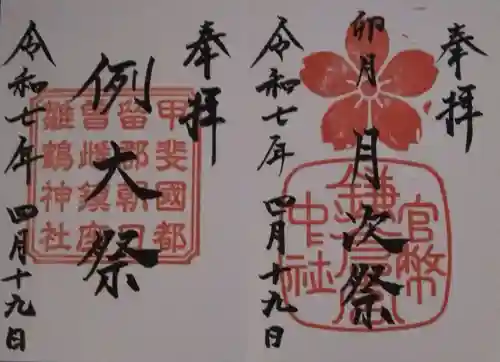 奉拝
卯月
月次祭
官幣
中社
令和七年 四月十九日
奉拝
例大祭
甲斐國都
留郡朝日
曾雌鎮座
雛鶴神社
令和七年 四月十九日